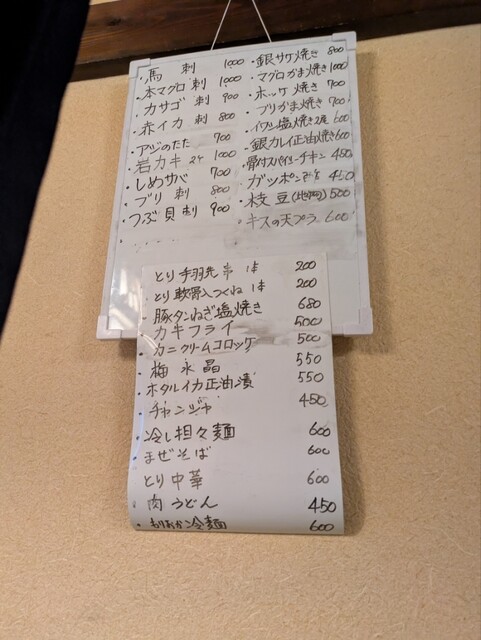 ・馬刺 1000
・本マグロ刺 1000
・カサゴ刺 900
・赤イカ刺 800
・アジのたたき 700
・岩カキ 2ケ 1000
・しめサバ 700
・ブリ刺 800
・つぶ貝刺 900
・銀サケ焼き 800
・マグロかま焼き 1000
・ホッケ焼き 700
・ブリかま焼き 700
・イワシ塩焼き2尾 600
・銀カレイ正油焼き 600
・骨付スパイシーチキン 450
・ガツポン酢 450
・枝豆(地物) 500
・キスの天プラ 600
・とり手羽先串 1本 200
・とり軟骨入つくね 1本 200
・豚タンねぎ塩焼き 680
・カキフライ 500
・カニクリームコロッケ 500
・梅水晶 550
・ホタルイカ正油漬 550
・チャンジャ 450
・冷し担々麺 600
・まぜそば 600
・とり中華 600
・肉うどん 450
・もりおか冷麺 600